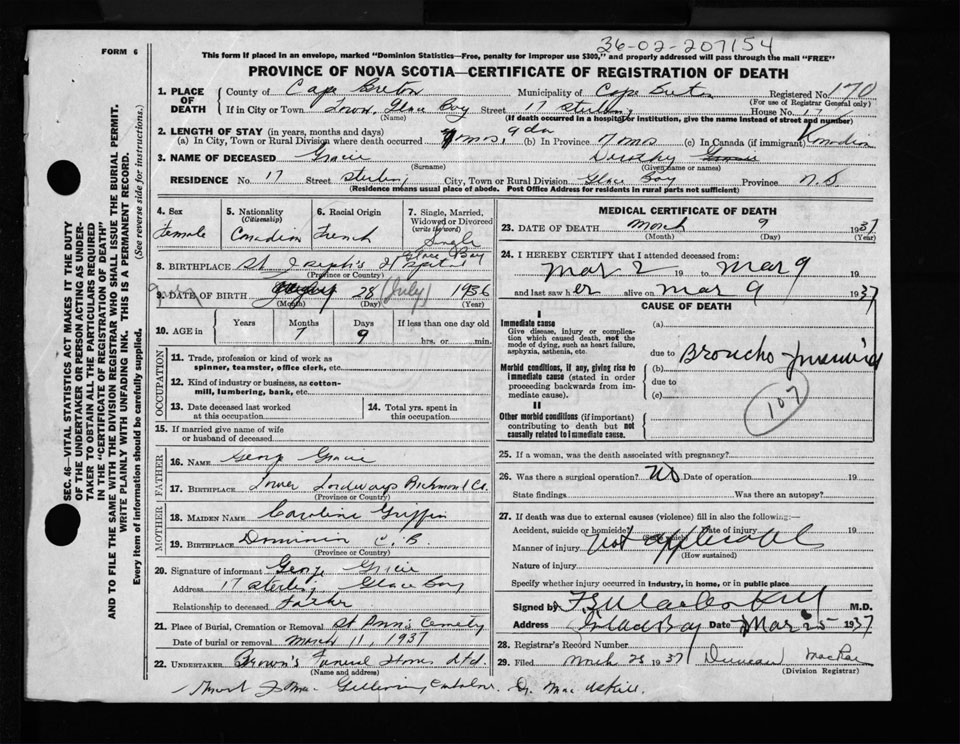 36-02-207154
FORM 6
This form if placed in an envelope, marked "Dominion Statistics—Free, penalty for improper use $300," and properly addressed will pass through the mail "FREE"
PROVINCE OF NOVA SCOTIA—CERTIFICATE OF REGISTRATION OF DEATH
SEC. 46—VITAL STATISTICS ACT MAKES IT THE DUTY
OF THE UNDERTAKER OR PERSON ACTING AS UNDER-
TAKER TO OBTAIN ALL THE PARTICULARS REQUIRED
IN THE "CERTIFICATE OF REGISTRATION OF DEATH"
AND TO FILE THE SAME WITH THE DIVISION REGISTRAR WHO SHALL ISSUE THE BURIAL PERMIT.
WRITE PLAINLY WITH UNFADING INK. THIS IS A PERMANENT RECORD.
Every item of information should be carefully supplied. (See reverse side for instructions.)
1. PLACE OF DEATH County of Cape Breton Municipality of Cape Breton Registered No. 170
(For use of Registrar General only)
If in City or Town Town Glace Bay Street 17 Sterling House No. 17
(Name) (If death occurred in a hospital or institution, give the name instead of street and number)
2. LENGTH OF STAY (in years, months and days)
(a) In City, Town or Rural Division where death occurred 7 mos. 9 da (b) In Province 7 mos (c) In Canada (if immigrant) Canadian
3. NAME OF DECEASED Gracie Dorothy
(Surname) (Given name or names)
RESIDENCE No. 17 Street Sterling City, Town or Rural Division Glace Bay Province N.S
(Residence means usual place of abode. Post Office Address for residents in rural parts not sufficient)
4. Sex 5. Nationality (Citizenship) 6. Racial Origin 7. Single, Married, Widowed or Divorced (write the word)
Female Canadian French Single
Glace Bay
8. BIRTHPLACE St Joseph's Hospital
(Province or Country)
9. DATE OF BIRTH 28 (July) 1936
(Month) (Day) (Year)
10. AGE in Years Months Days If less than one day old
7 9 hrs. or min.
OCCUPATION
11. Trade, profession or kind of work as
spinner, teamster, office clerk, etc.
12. Kind of industry or business, as cotton-
mill, lumbering, bank, etc.
13. Date deceased last worked
at this occupation
14. Total yrs. spent in
this occupation
15. If married give name of wife
or husband of deceased
FATHER
16. NAME George Gracie
17. BIRTHPLACE Lower Lardways Richmond Co.
(Province or Country)
MOTHER
18. MAIDEN NAME Caroline Griffin
19. BIRTHPLACE Dominion C.B
(Province or Country)
20. Signature of informant George Gracie
Address 17 Sterling Glace Bay
Relationship to deceased Father
21. Place of Burial, Cremation or Removal St Ann's Cemetery
Date of burial or removal March 11, 1937
22. UNDERTAKER Brown's Funeral Home Ltd.
(Name and address)
MEDICAL CERTIFICATE OF DEATH
23. DATE OF DEATH March 9 1937
(Month) (Day) (Year)
24. I HEREBY CERTIFY that I attended deceased from:
Mar 2 19 to Mar 9 19
and last saw her alive on Mar 9 1937
CAUSE OF DEATH
I
Immediate cause
Give disease, injury or complica-
tion which caused death, not the
mode of dying, such as heart failure,
asphyxia, asthenia, etc.
(a)
due to Broncho-pneumonia
Morbid conditions, if any, giving rise to
immediate cause (stated in order
proceeding backwards from im-
mediate cause).
(b)
due to
(c)
107
II
Other morbid conditions (if important)
contributing to death but not
causally related to immediate cause.
25. If a woman, was the death associated with pregnancy?
26. Was there a surgical operation? No Date of operation 19
State findings Was there an autopsy?
27. If death was due to external causes (violence) fill in also the following:—
Accident, suicide or homicide? Date of injury 19
Manner of injury Not applicable
(How sustained)
Nature of injury
Specify whether injury occurred in industry, in home, or in public place
Signed by M.D.
Address Glace Bay Date Mar 25 1937
28. Registrar's Record Number
29. Filed March 25 1937 Duncan MacRae
(Division Registrar)
Embalmer Dr. MacAskill.